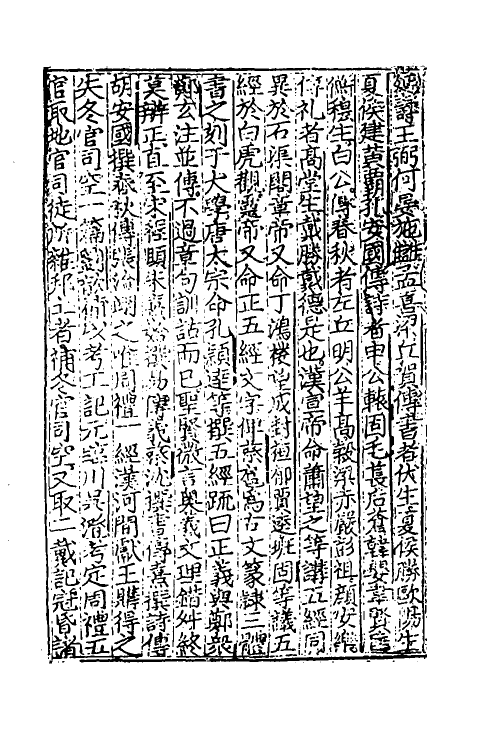 王弼何晏施讎孟喜梁丘賀傳書者伏生夏侯勝歐陽生
夏侯建黃霸孔安國傳詩者申公轅固毛萇后蒼韓嬰韋賢
穆生白公傳春秋者左丘明公羊高穀梁赤嚴彭祖顏安樂
傳礼者高堂生戴勝戴德是也漢宣帝命蕭望之等講五經同
異於石渠閣章帝又命丁鴻樓望成封桓郁賈逵班固等議五
經於白虎觀靈帝又命正五經文字俾蔡邕為古文篆隷三體
書之刻于大學唐太宗命孔穎達等撰五經疏曰正義與鄭衆
鄭玄注並傳不過章句訓詁而已聖賢微言奧義文理錯舛終
莫辯正直至宋程頤朱熹撰易傳義蔡沈撰書傳熹撰詩傳
胡安國撰春秋傳張洽翊之惟周禮一經漢河間獻王購得之
失冬官司空一篇劉歆補以考工記元臨川吳澄考定周禮五
官取地官司徒所雜邦土者補冬官司空又取二戴記冠昏諸